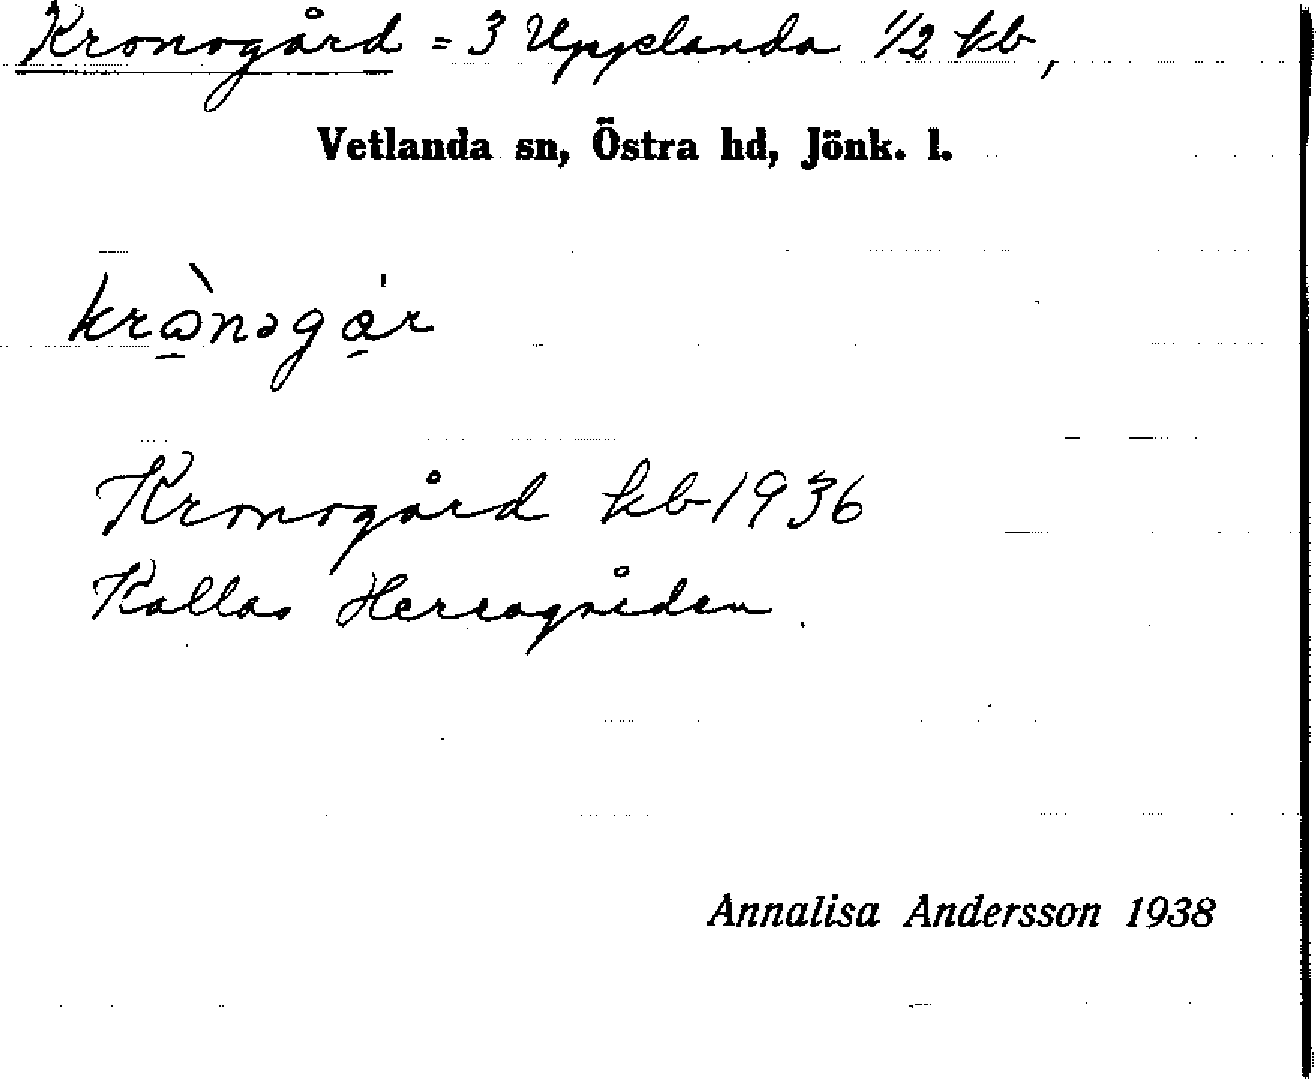 Kronogård = 3 Upplanda 1/2 kb,
Vetlanda sn, Östra hd, Jönk. l.
Kronogård kb 1936
Kallas Herragården.
Annalisa Andersson 1938